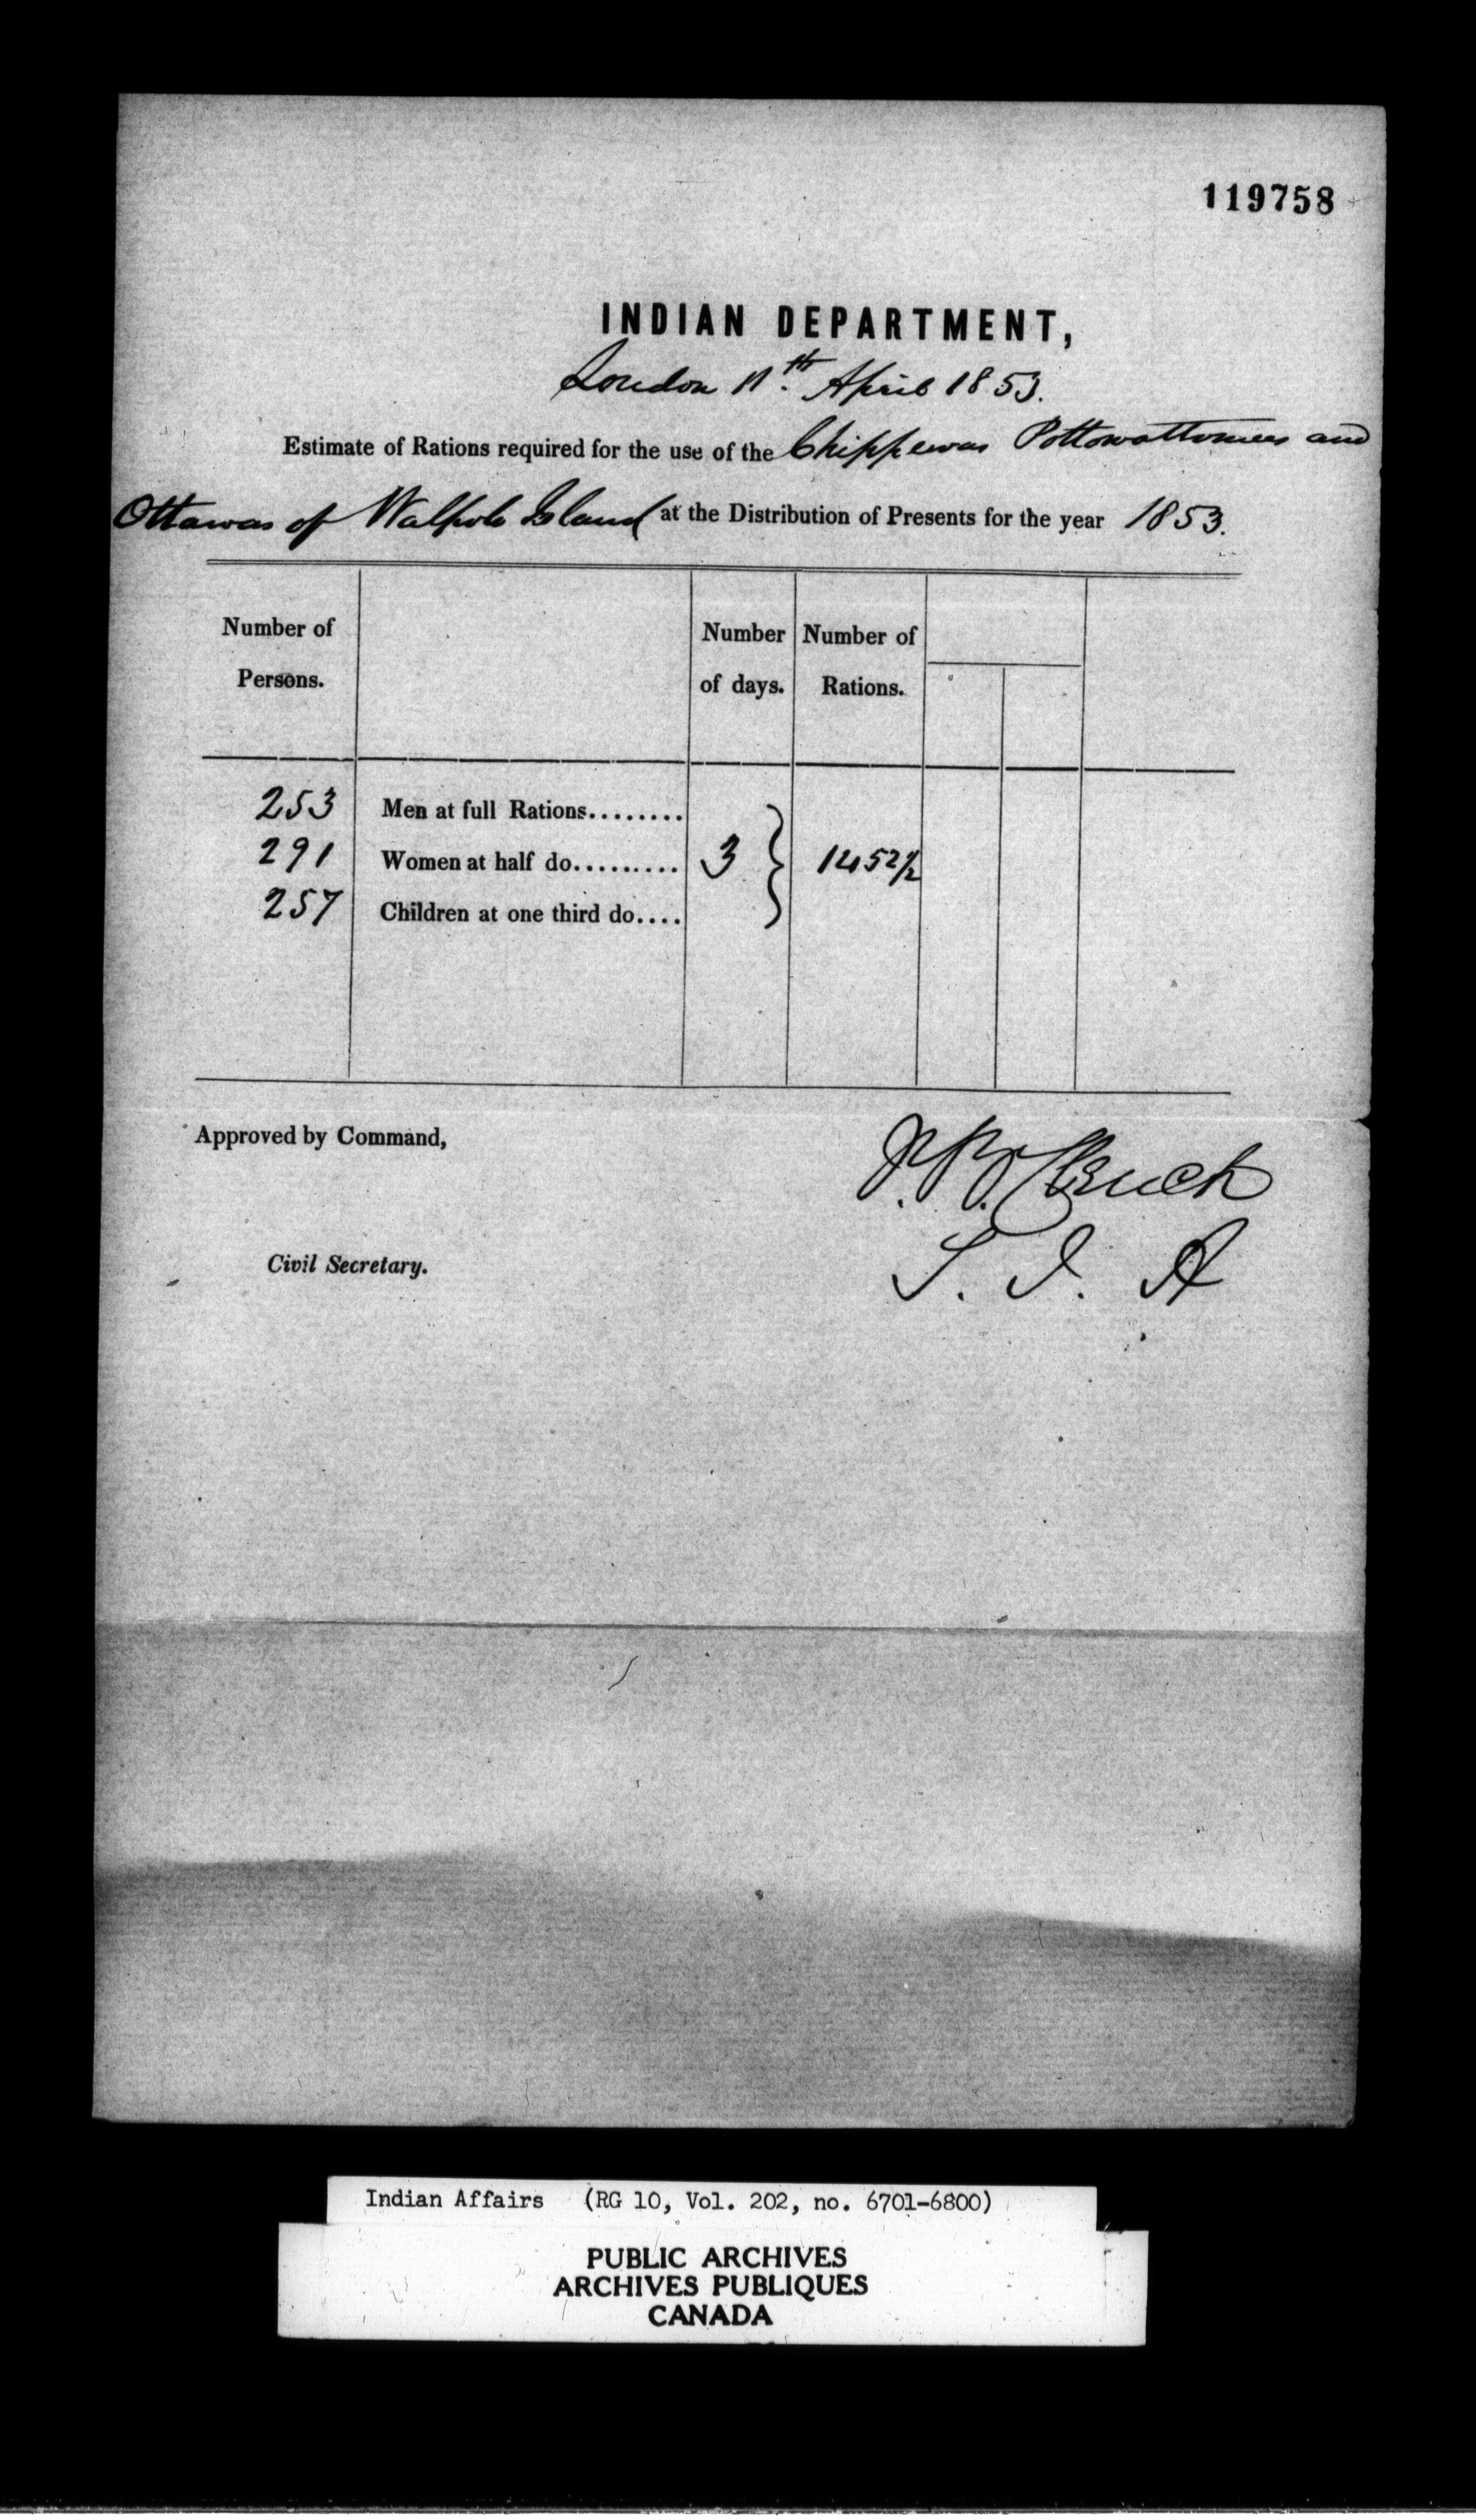 119758
INDIAN DEPARTMENT,
London 11th. April 1853.
Estimate of Rations required for the use of the Chippewas Pottowattomies and
Ottawas of Walpole Island at the Distribution of Presents for the year 1853.
Number of Persons.
Number of days.
Number of Rations.
253 Men at full Rations........
291 Women at half do......... 3 } 1452 1/2
257 Children at one third do....
Approved by Command,
Civil Secretary.
S. I. A
Indian Affairs (RG 10, Vol. 202, no. 6701-6800)
PUBLIC ARCHIVES
ARCHIVES PUBLIQUES
CANADA